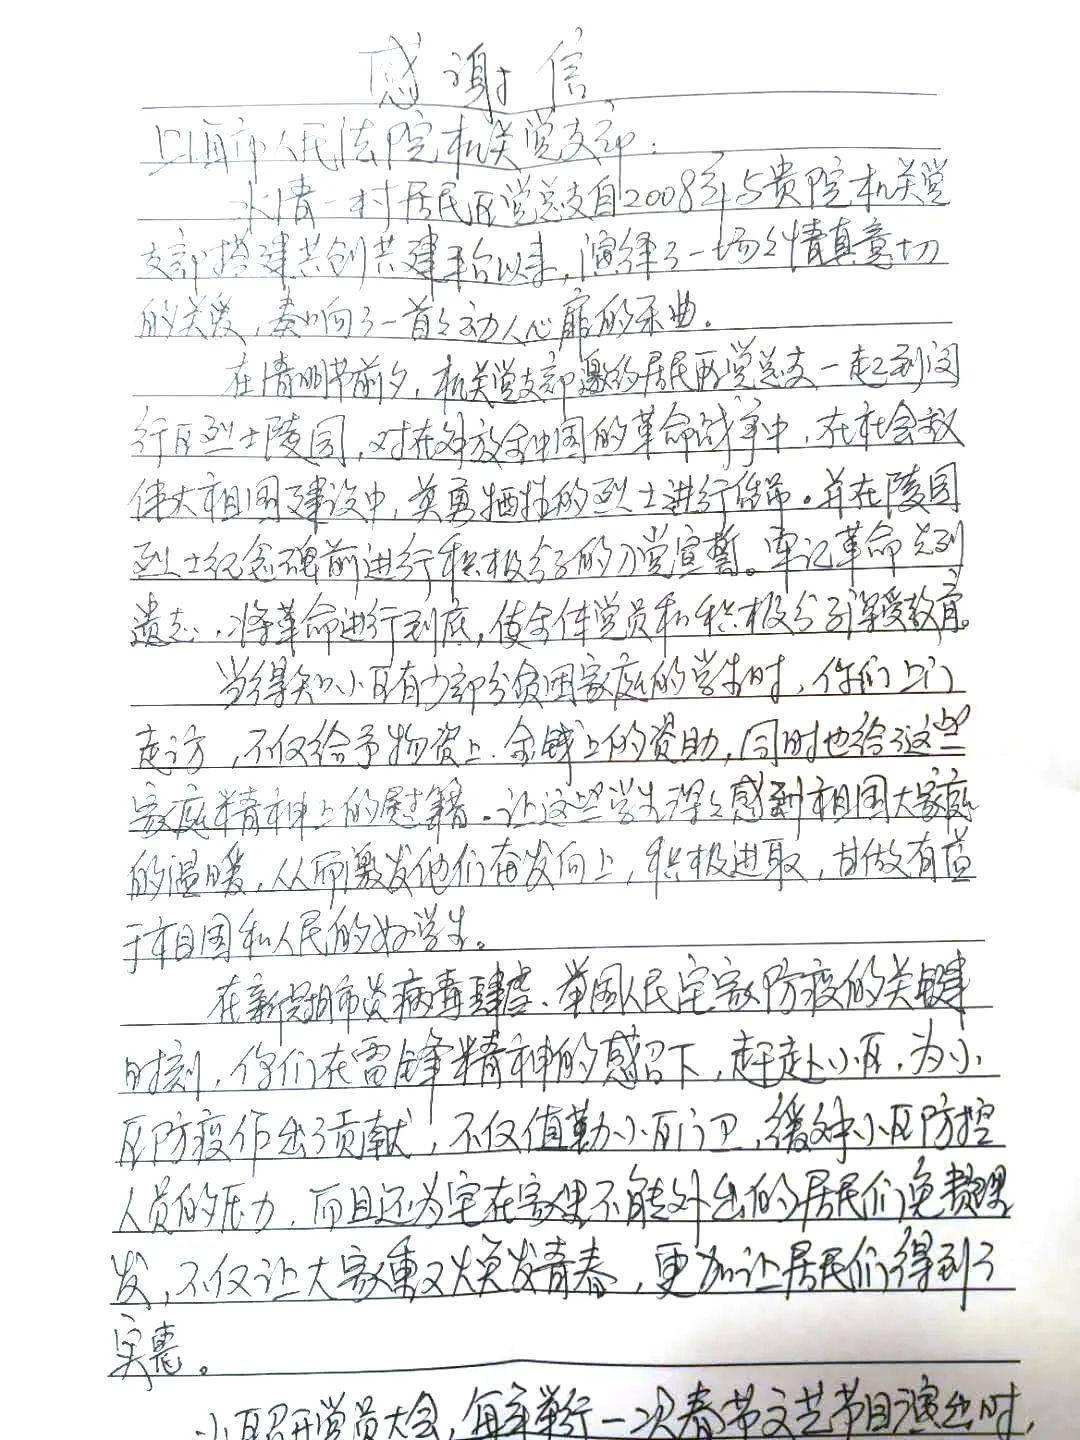 感谢信
上海市人民法院机关党支部：
水清一村居民区党总支自2008年与贵院机关党
支部搭建共创共建平台以来，演绎了一场々情真意切
的关爱，奏响了一首々动人心扉的乐曲。
在清明节前夕，机关党支部邀约居民区党总支一起到闵
行区烈士陵园，对在解放全中国的革命战争中，在社会主义
伟大祖国建设中，英勇牺牲的烈士进行悼念。并在陵园
烈士纪念碑前进行积极分子的入党宣誓。牢记革命先烈
遗志，将革命进行到底，使全体党员和积极分子深受教育。
当得知小区有少部分贫困家庭的学生时，你们上门
走访，不仅给予物资上、金钱上的资助，同时也给了这些
家庭精神上的慰籍。让这些学生深々感到祖国大家庭
的温暖，从而激发他们奋发向上，积极进取，甘做有益
于祖国和人民的好学生。
在新冠肺炎病毒肆虐、举国人民宅家防疫的关键
时刻，你们在雷锋精神的感召下，赶赴小区，为小
区防疫作出了贡献，不仅值勤小区门卫，缓解小区防控
人员的压力，而且还为宅在家里不能外出的居民们免费理
发，不仅让大家重又焕发青春，更加让居民们得到了
实惠。
小区召开党员大会，每年举行一次春节文艺节目演出时，